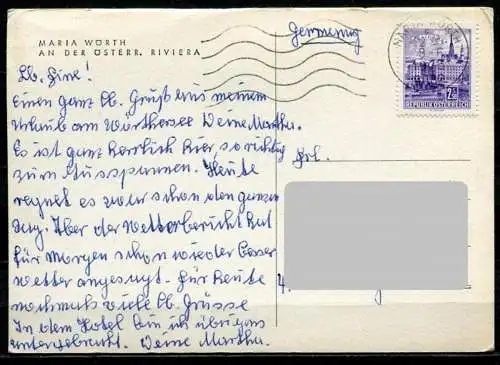 MARIA WÖRTH
AN DER ÖSTERR. RIVIERA
Germany
Lb. Fine!
Einen ganz lb. Gruß aus meinem
Urlaub am Wörthersee Deine Martha.
Es ist ganz herrlich hier, so richtig
zum Ausspannen. Heute
regnet es zwar schon den ganzen
Tag. Aber der Wetterbericht hat
für Morgen schon wieder besser
wetter angesagt. Für heute
nochmals viele lb. Grüsse
In dem Hotel bin ich übrigens
untergebracht. Deine Martha.
Frl.
MARIA WÖRTH
REPUBLIK ÖSTERREICH